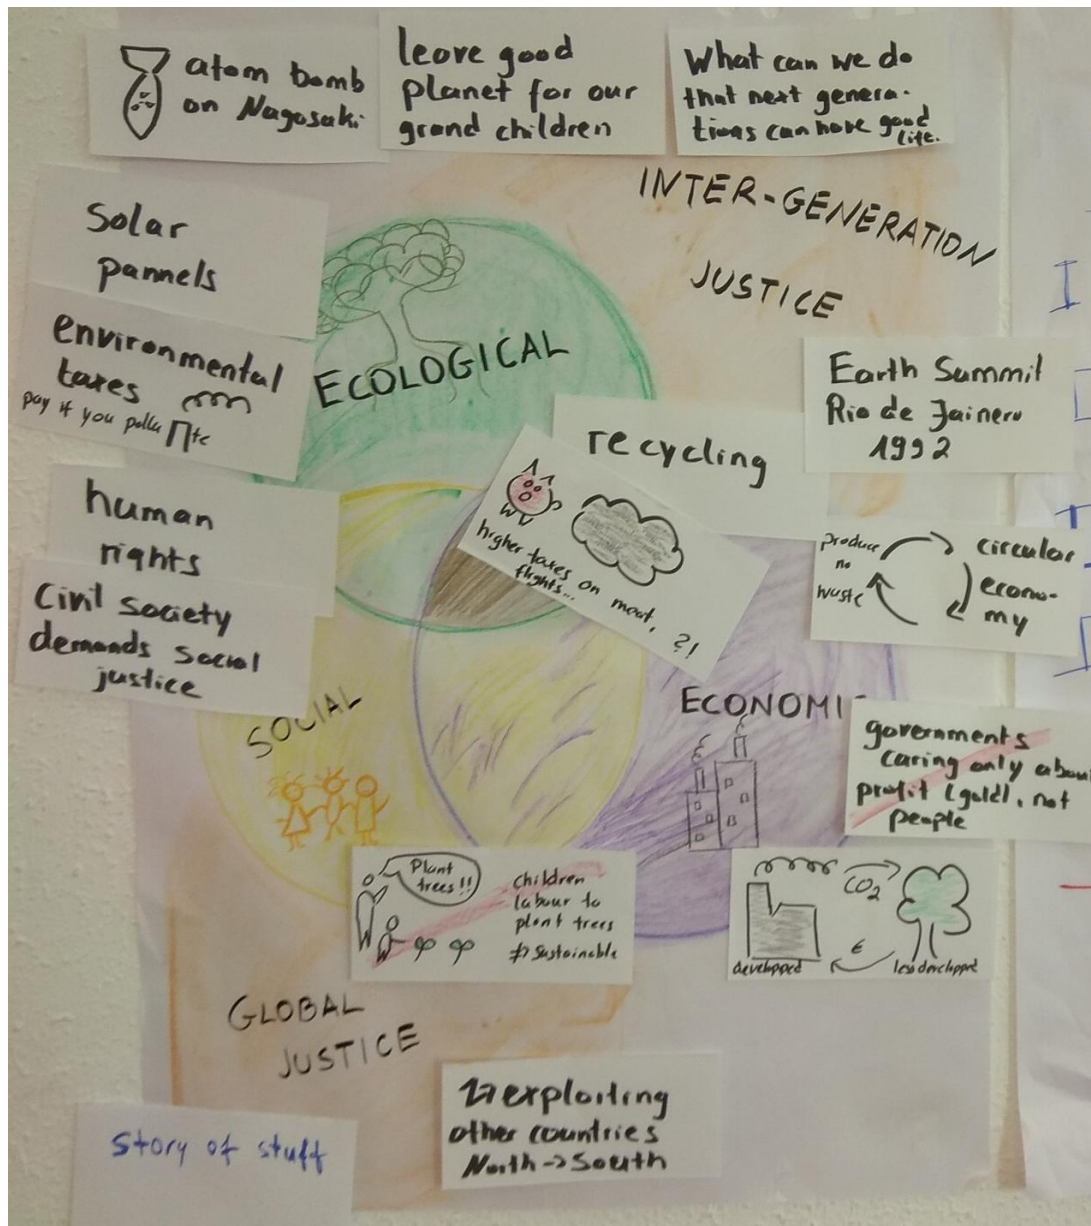 atom bomb
on Nagasaki
leave good
planet for our
grand children
What can we do
that next genera-
tions can have good
life.
INTER-GENERATION
JUSTICE
Solar
pannels
environmental
taxes
pay if you pollu
ECOLOGICAL
Earth Summit
Rio de Jaineru
1992
recycling
higher taxes on meat,
flights... ?!
human
rights
Civil society
demands social
justice
produce
no
waste
circular
econo-
my
SOCIAL
ECONOMI
governments
caring only abou
profit (gold), not
people
Plant
trees!!
children
labour to
plant trees
≠> sustainable
CO2
€
developped
less developped
GLOBAL
JUSTICE
exploiting
other countries
North -> South
Story of stuff